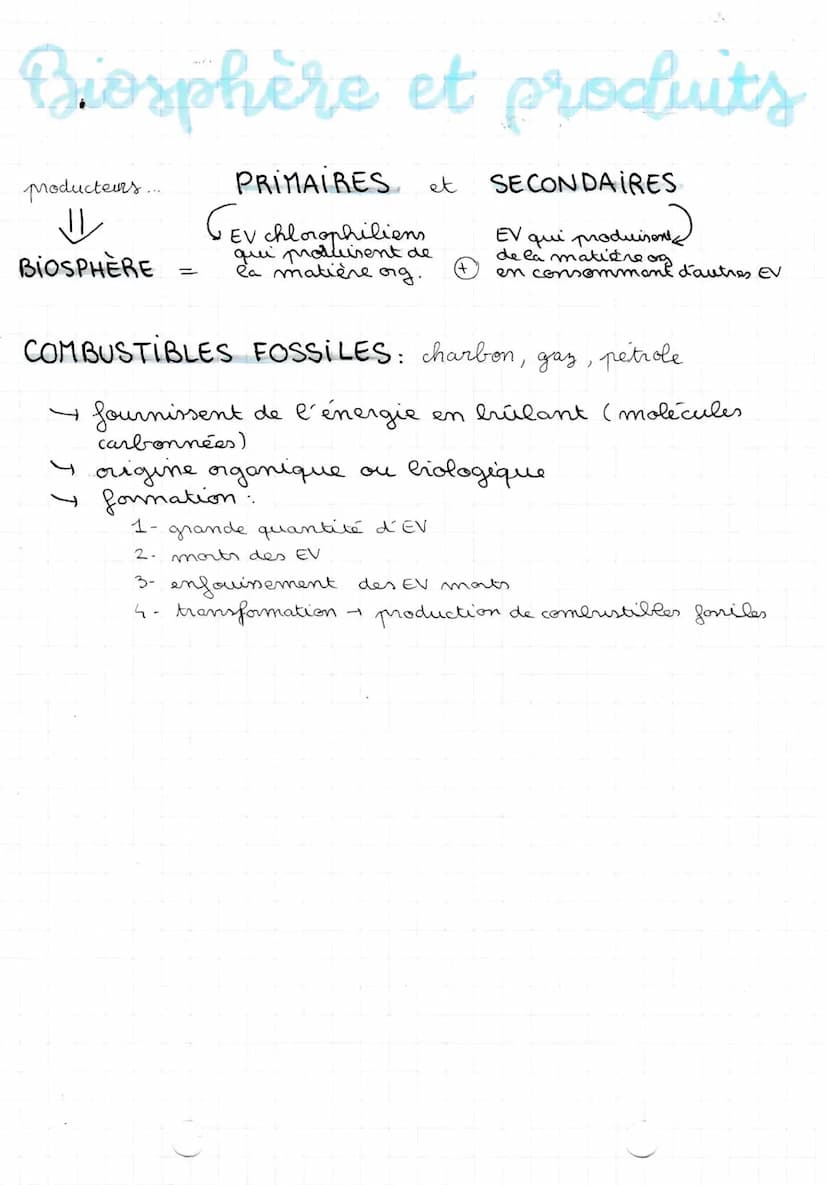 Biosphère et produits
producteurs... PRIMAIRES et SECONDAIRES
EV chlorophiliens
qui produisent de
la matière org.
EV qui produisent
de la matière org
en consommant d'autres EV
BIOSPHÈRE = +
COMBUSTIBLES FOSSILES : charbon, gaz, pétrole
→ fournissent de l'énergie en brûlant (molécules
carbonnées)
→ origine organique ou biologique
→ formation :
1- grande quantité d'EV
2- morts des EV
3- enfouissement des EV morts
4- transformation → production de combustibles fossiles